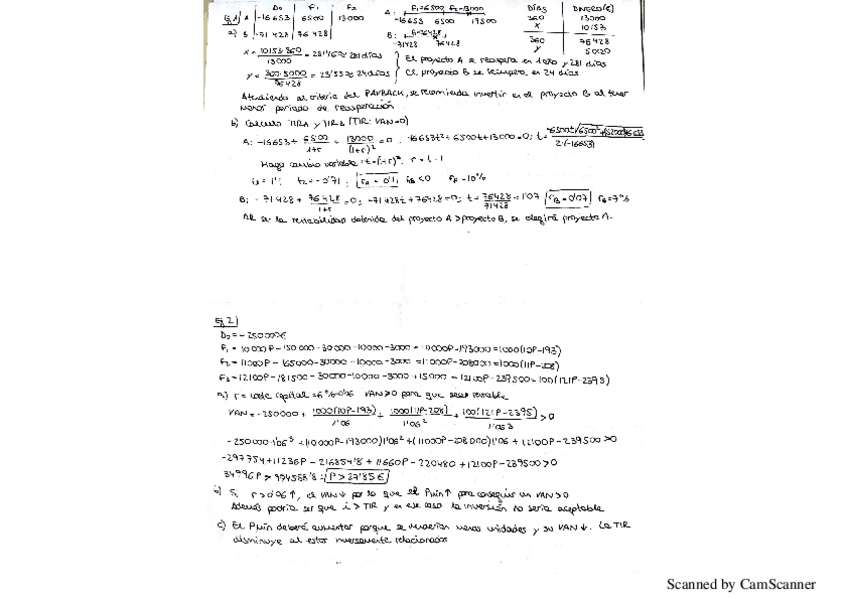 Ej.1) D0 F1 F2 A: F1=6500 F2=13000 Días Dinero(€)
A -16653 6500 13000 -16653 6500 19500 360 13000
a) B -71428 76428 B: x 10153
-71428 76428 360 76428
x = 10153·360/13000 = 281'16 ≈ 281 días El proyecto A se recupera en 1 año y 281 días y
y = = 23'55 ≈ 24 días El proyecto B se recupera en 24 días
Atendiendo al criterio del PAYBACK, se recomienda invertir en el proyecto B al tener
menor periodo de recuperación
b) Calculo TIRA y TIRB (TIR: VAN=0)
A: -16653 + 6500/1+r + 13000/(1+r)² = 0 -16653t² + 6500t + 13000 = 0; t =
Hago cambio variable t = r = t - 1
t2 = -0'71 rA = 0'1 rB < 0 10%
B: -71428 + 76428/1+r = 0; -71428t + 76428 = 0; t = 76428/71428 = 1'07 rB = 0'07 7%
la rentabilidad obtenida del proyecto A > proyecto B, se elegirá proyecto A.
Ej.2)
D0 = -250000€
F1 = 10000P - 150000 - 30000 - 10000 - 3000 = 10000P - 193000 = 1000(10P-193)
F2 = 11000P - 165000 - 30000 - 10000 - 3000 = 11000P - 208000 = 1000(11P-208)
F3 = 12100P - 181500 - 30000 - 10000 - 3000 + 15000 = 12100P - 239500 = 100(121P-2395)
a) r = coste capital = 6% = 0'06 VAN>0 para que sea rentable
VAN = -250000 + 1000(10P-193)/1'06 + 1000(11P-208)/1'06² + 100(121P-2395)/1'06³ > 0
-250000·1'06³ + (10000P-193000)1'06² + (11000P-208000)1'06 + 12100P - 239500 > 0
-297754 + 11236P - 216854'8 + 11660P - 220480 + 12100P - 239500 > 0
34996P > 974588'8; P > 27'85€
b) Si r > 0'06 ↑, el VAN ↓ por lo que el Pmin ↑ para conseguir un VAN>0
Además podría ser que i > TIR y en ese caso la inversión no sería aceptable
c) El Pmin deberá aumentar porque se venderían menos unidades y su VAN ↓. La TIR
disminuye al estar inversamente relacionados
Scanned by CamScanner